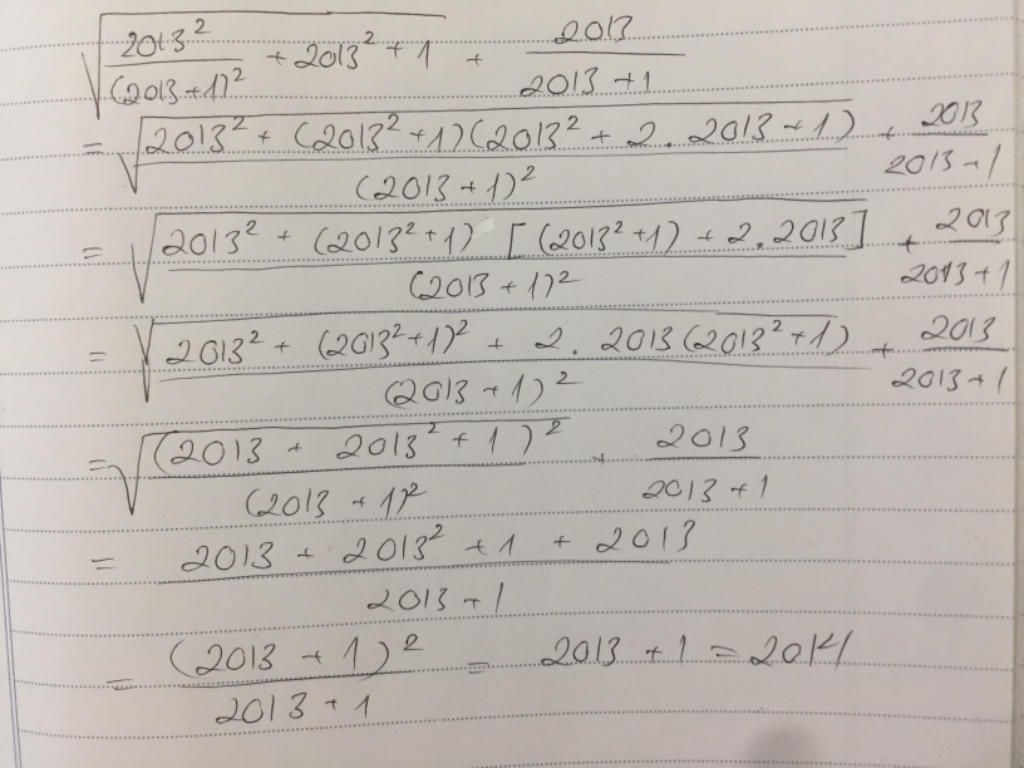 √(2013²/(2013+1)² + 2013² + 1) + 2013/(2013+1)
= √((2013² + (2013²+1)(2013² + 2 . 2013 + 1))/(2013+1)²) + 2013/(2013+1)
= √((2013² + (2013²+1) [(2013²+1) + 2 . 2013])/(2013+1)²) + 2013/(2013+1)
= √((2013² + (2013²+1)² + 2 . 2013(2013²+1))/(2013+1)²) + 2013/(2013+1)
= √((2013 + 2013² + 1)²/(2013+1)²) + 2013/(2013+1)
= (2013 + 2013² + 1 + 2013)/(2013+1)
= (2013+1)²/(2013+1) = 2013 + 1 = 2014